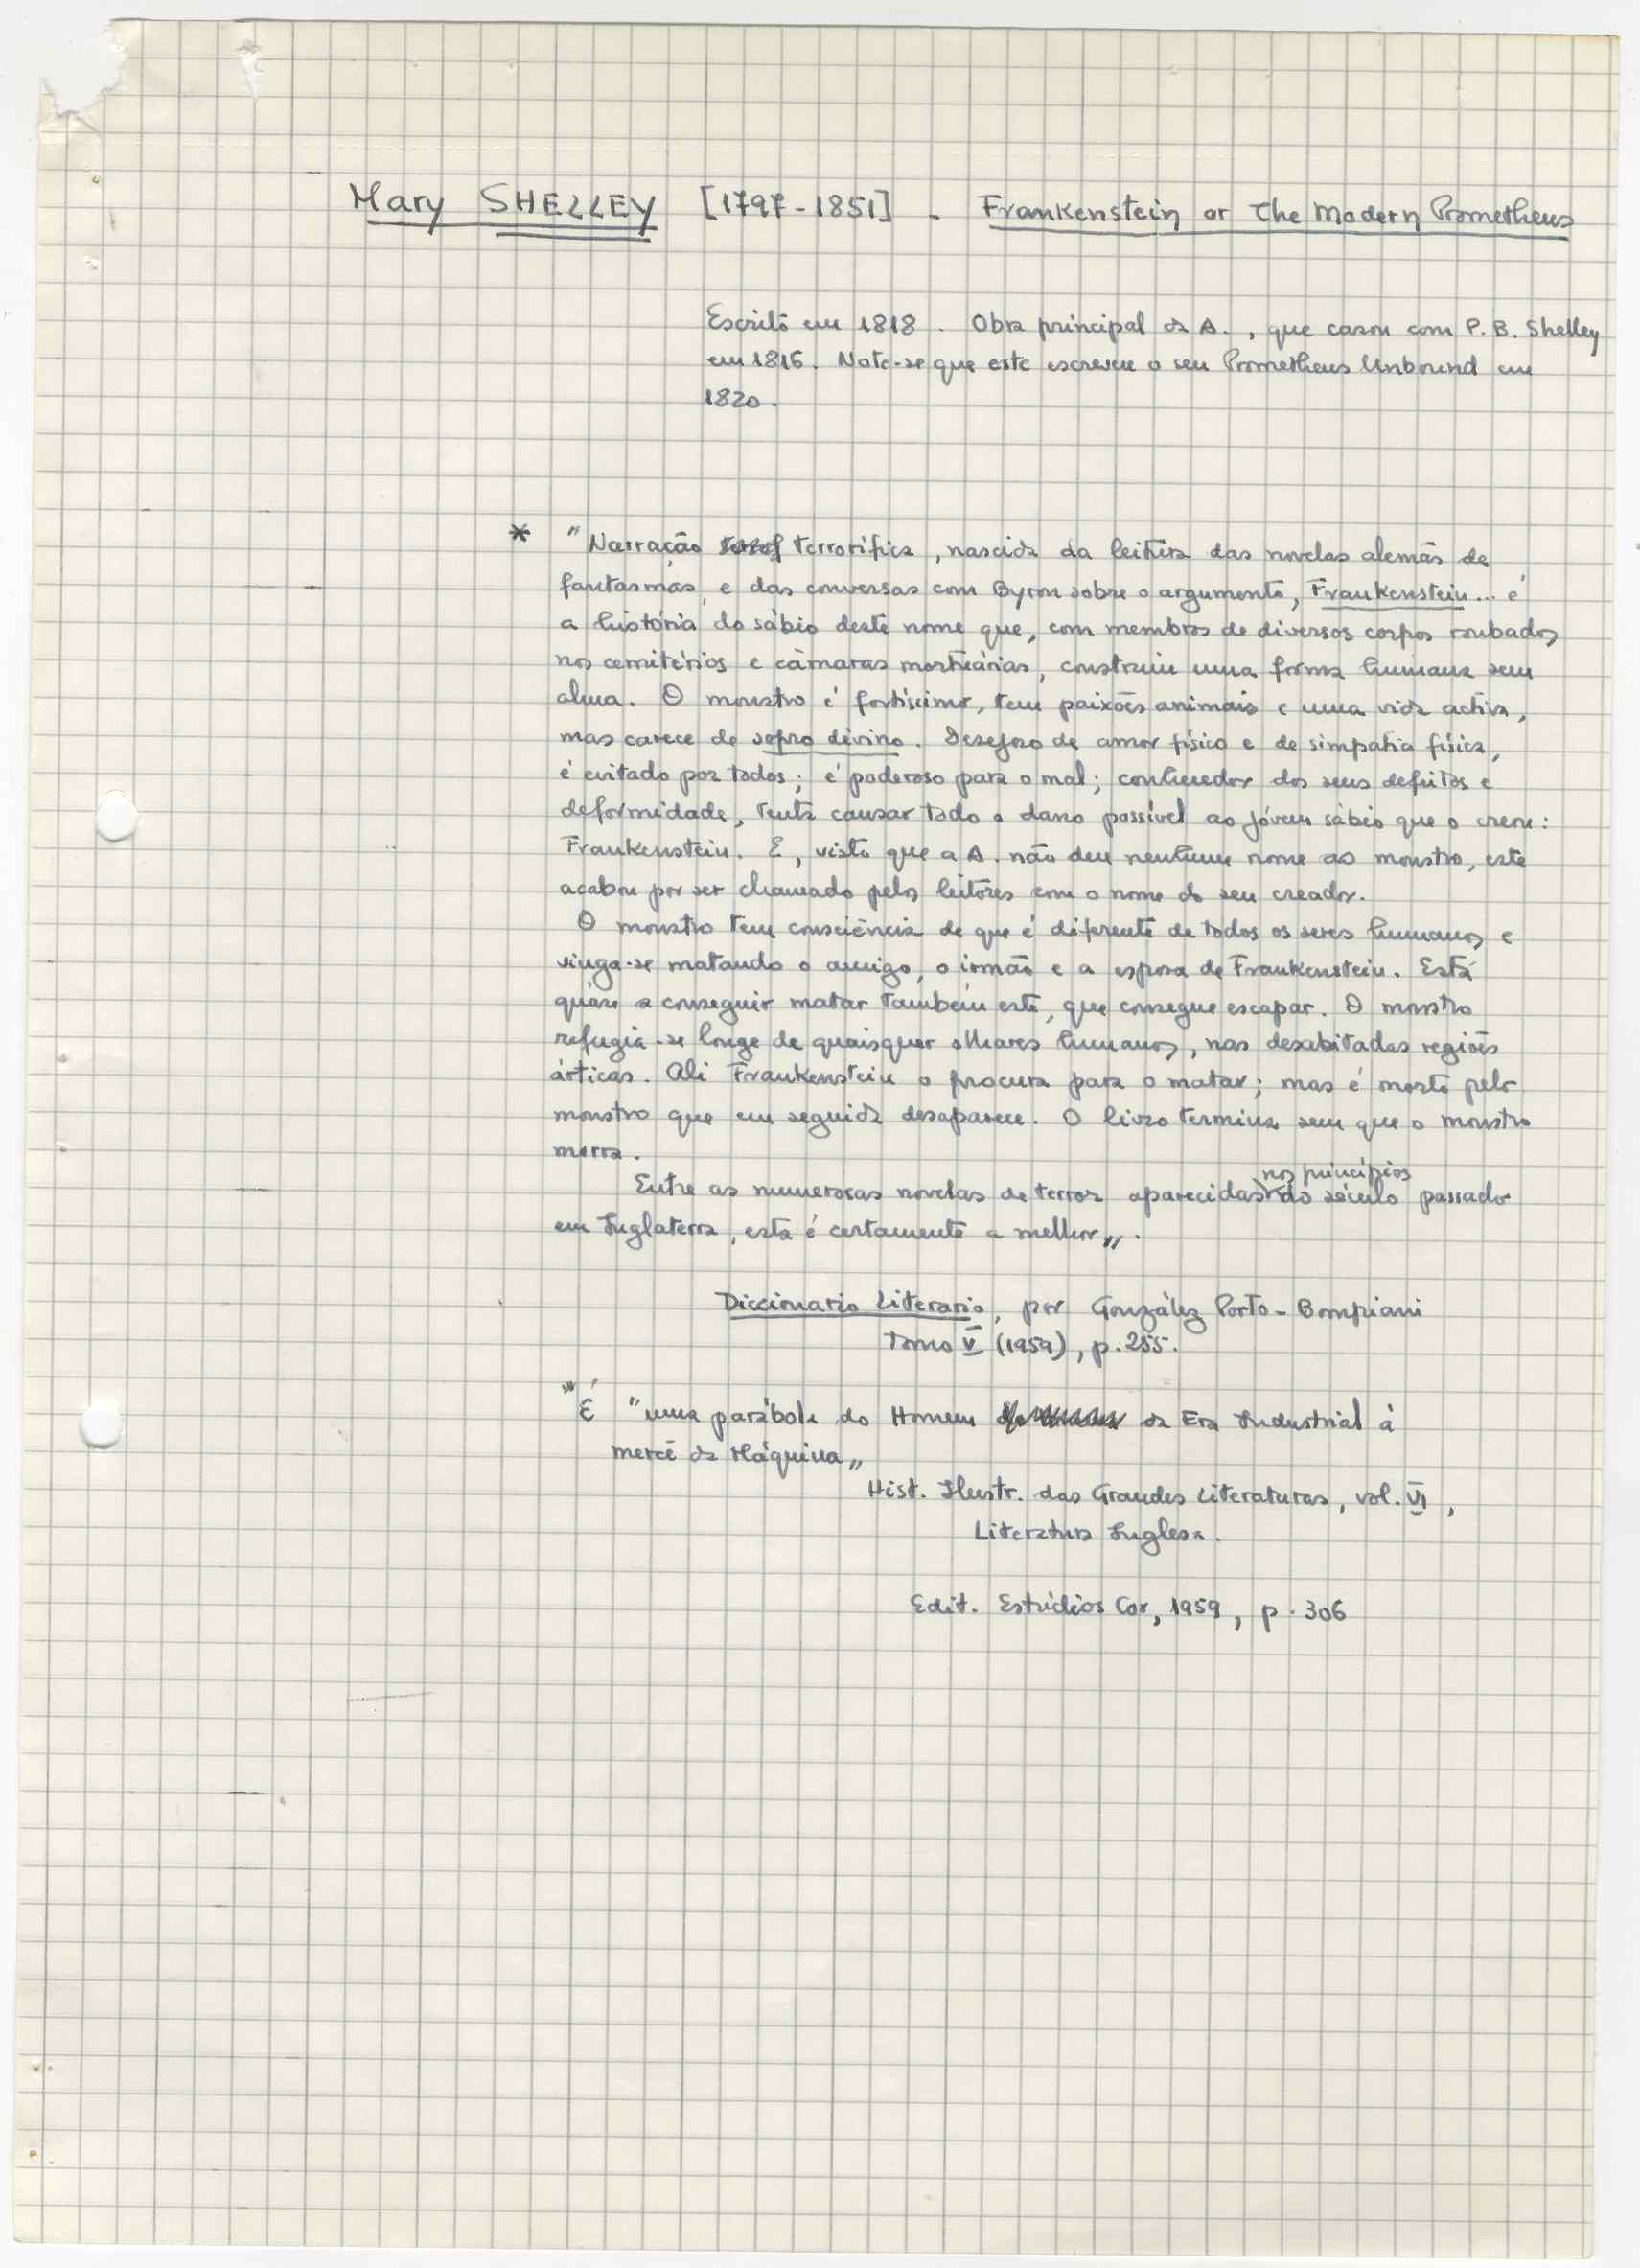 Mary SHELLEY [1797-1851] - Frankenstein or The Modern Prometheus
Escrito em 1818. Obra principal da A., que casou com P. B. Shelley
em 1816. Note-se que este escreveu o seu Prometheus Unbound em
1820.
* "Narração terrorífica, nascida da leitura das novelas alemãs de
fantasmas e das conversas com Byron sobre o argumento, Frankenstein... é
a história do sábio deste nome que, com membros de diversos corpos roubados
nos cemitérios e câmaras mortuárias, construiu uma forma humana sem
alma. O monstro é fortíssimo, tem paixões animais e uma vida activa,
mas carece de sopro divino. Desejoso de amor físico e de simpatia física,
é evitado por todos; é poderoso para o mal; conhecedor dos seus defeitos e
deformidade, tenta causar todo o dano possível ao jóvem sábio que o creou:
Frankenstein. E, visto que a A. não deu nenhum nome ao monstro, este
acabou por ser chamado pelos leitores com o nome do seu creador.
O monstro tem consciência de que é diferente de todos os seres humanos e
vinga-se matando o amigo, o irmão e a esposa de Frankenstein. Está
quáse a conseguir matar também este, que consegue escapar. O monstro
refugia-se longe de quaisquer olhares humanos, nas desabitadas regiões
árticas. Ali Frankenstein o procura para o matar; mas é morto pelo
monstro que em seguida desaparece. O livro termina sem que o monstro
morra.
Entre as numerosas novelas de terror aparecidas nos princípios do século passado
em Inglaterra, esta é certamente a melhor".
Diccionario Literario, por González Porto-Bompiani
Tomo V (1959), p. 255.
"É "uma parábola do Homem da Era Industrial à
mercê da Máquina"
Hist. Ilustr. das Grandes Literaturas, vol. VI,
Literatura Inglesa.
Edit. Estúdios Cor, 1959, p. 306